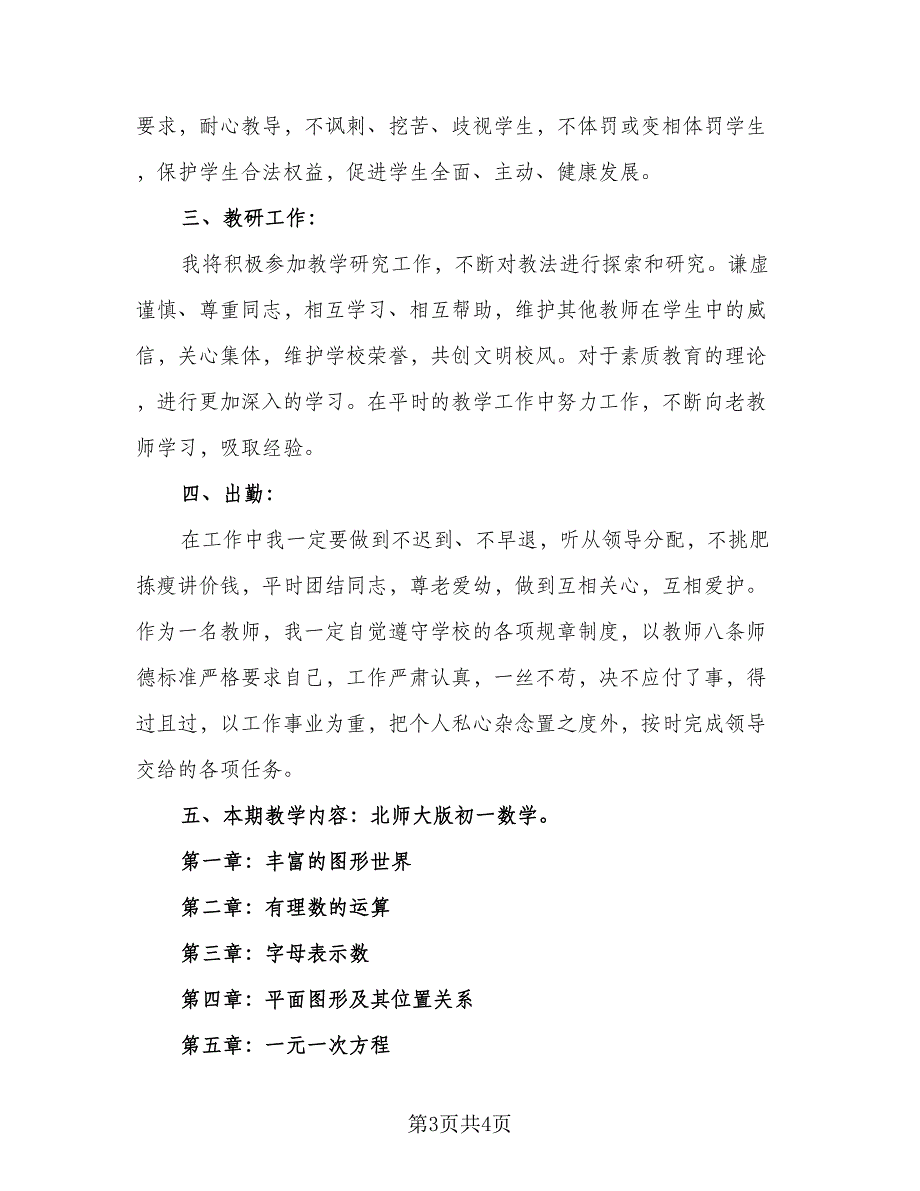 要求，耐心教导，不讽刺、挖苦、歧视学生，不体罚或变相体罚学生
，保护学生合法权益，促进学生全面、主动、健康发展。
三、教研工作：
我将积极参加教学研究工作，不断对教法进行探索和研究。谦虚
谨慎、尊重同志，相互学习、相互帮助，维护其他教师在学生中的威
信，关心集体，维护学校荣誉，共创文明校风。对于素质教育的理论
，进行更加深入的学习。在平时的教学工作中努力工作，不断向老教
师学习，吸取经验。
四、出勤：
在工作中我一定要做到不迟到、不早退，听从领导分配，不挑肥
拣瘦讲价钱，平时团结同志，尊老爱幼，做到互相关心，互相爱护。
作为一名教师，我一定自觉遵守学校的各项规章制度，以教师八条师
德标准严格要求自己，工作严肃认真，一丝不苟，决不应付了事，得
过且过，以工作事业为重，把个人私心杂念置之度外，按时完成领导
交给的各项任务。
五、本期教学内容：北师大版初一数学。
第一章：丰富的图形世界
第二章：有理数的运算
第三章：字母表示数
第四章：平面图形及其位置关系
第五章：一元一次方程
第3页共4页